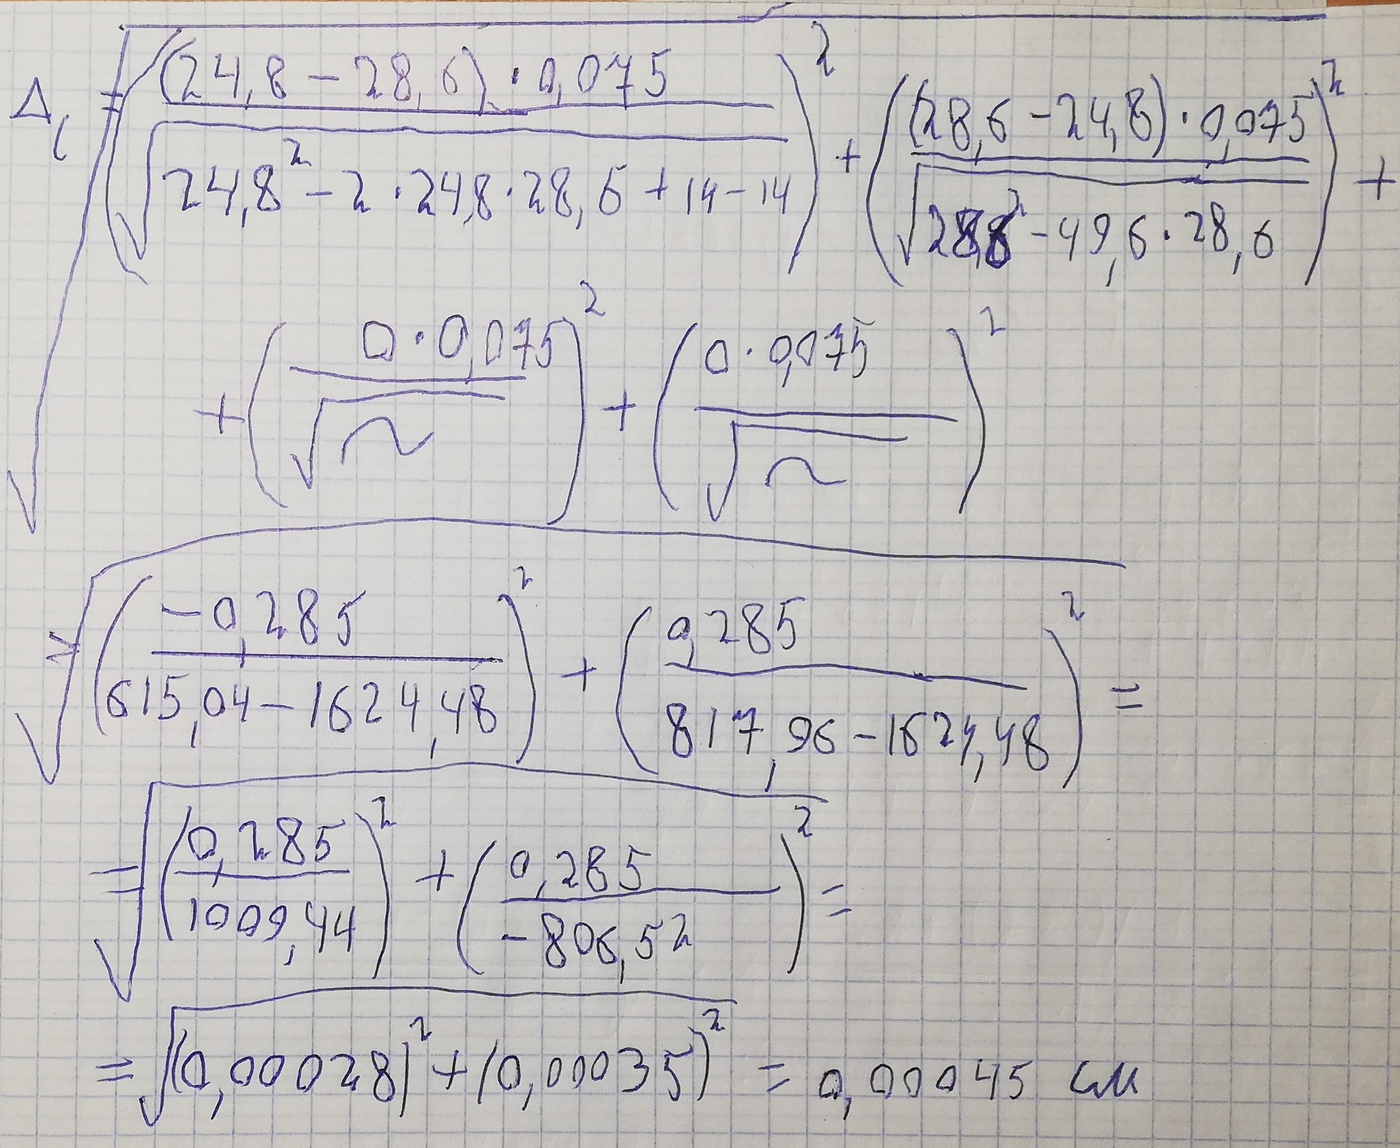 Δl = √((24,8 − 28,6) · 0,075 / √(24,8² − 2 · 24,8 · 28,6 + 14 − 14))² + ((28,6 − 24,8) · 0,075 / √(28,6² − 49,6 · 28,6))² +
+ (0 · 0,075 / √~)² + (0 · 0,075 / √~)²
= √(−0,285 / 615,04 − 1624,48)² + (0,285 / 817,96 − 1624,48)² =
= √(0,285 / 1009,44)² + (0,285 / −806,52)² =
= √(0,00028)² + (0,00035)² = 0,00045 см